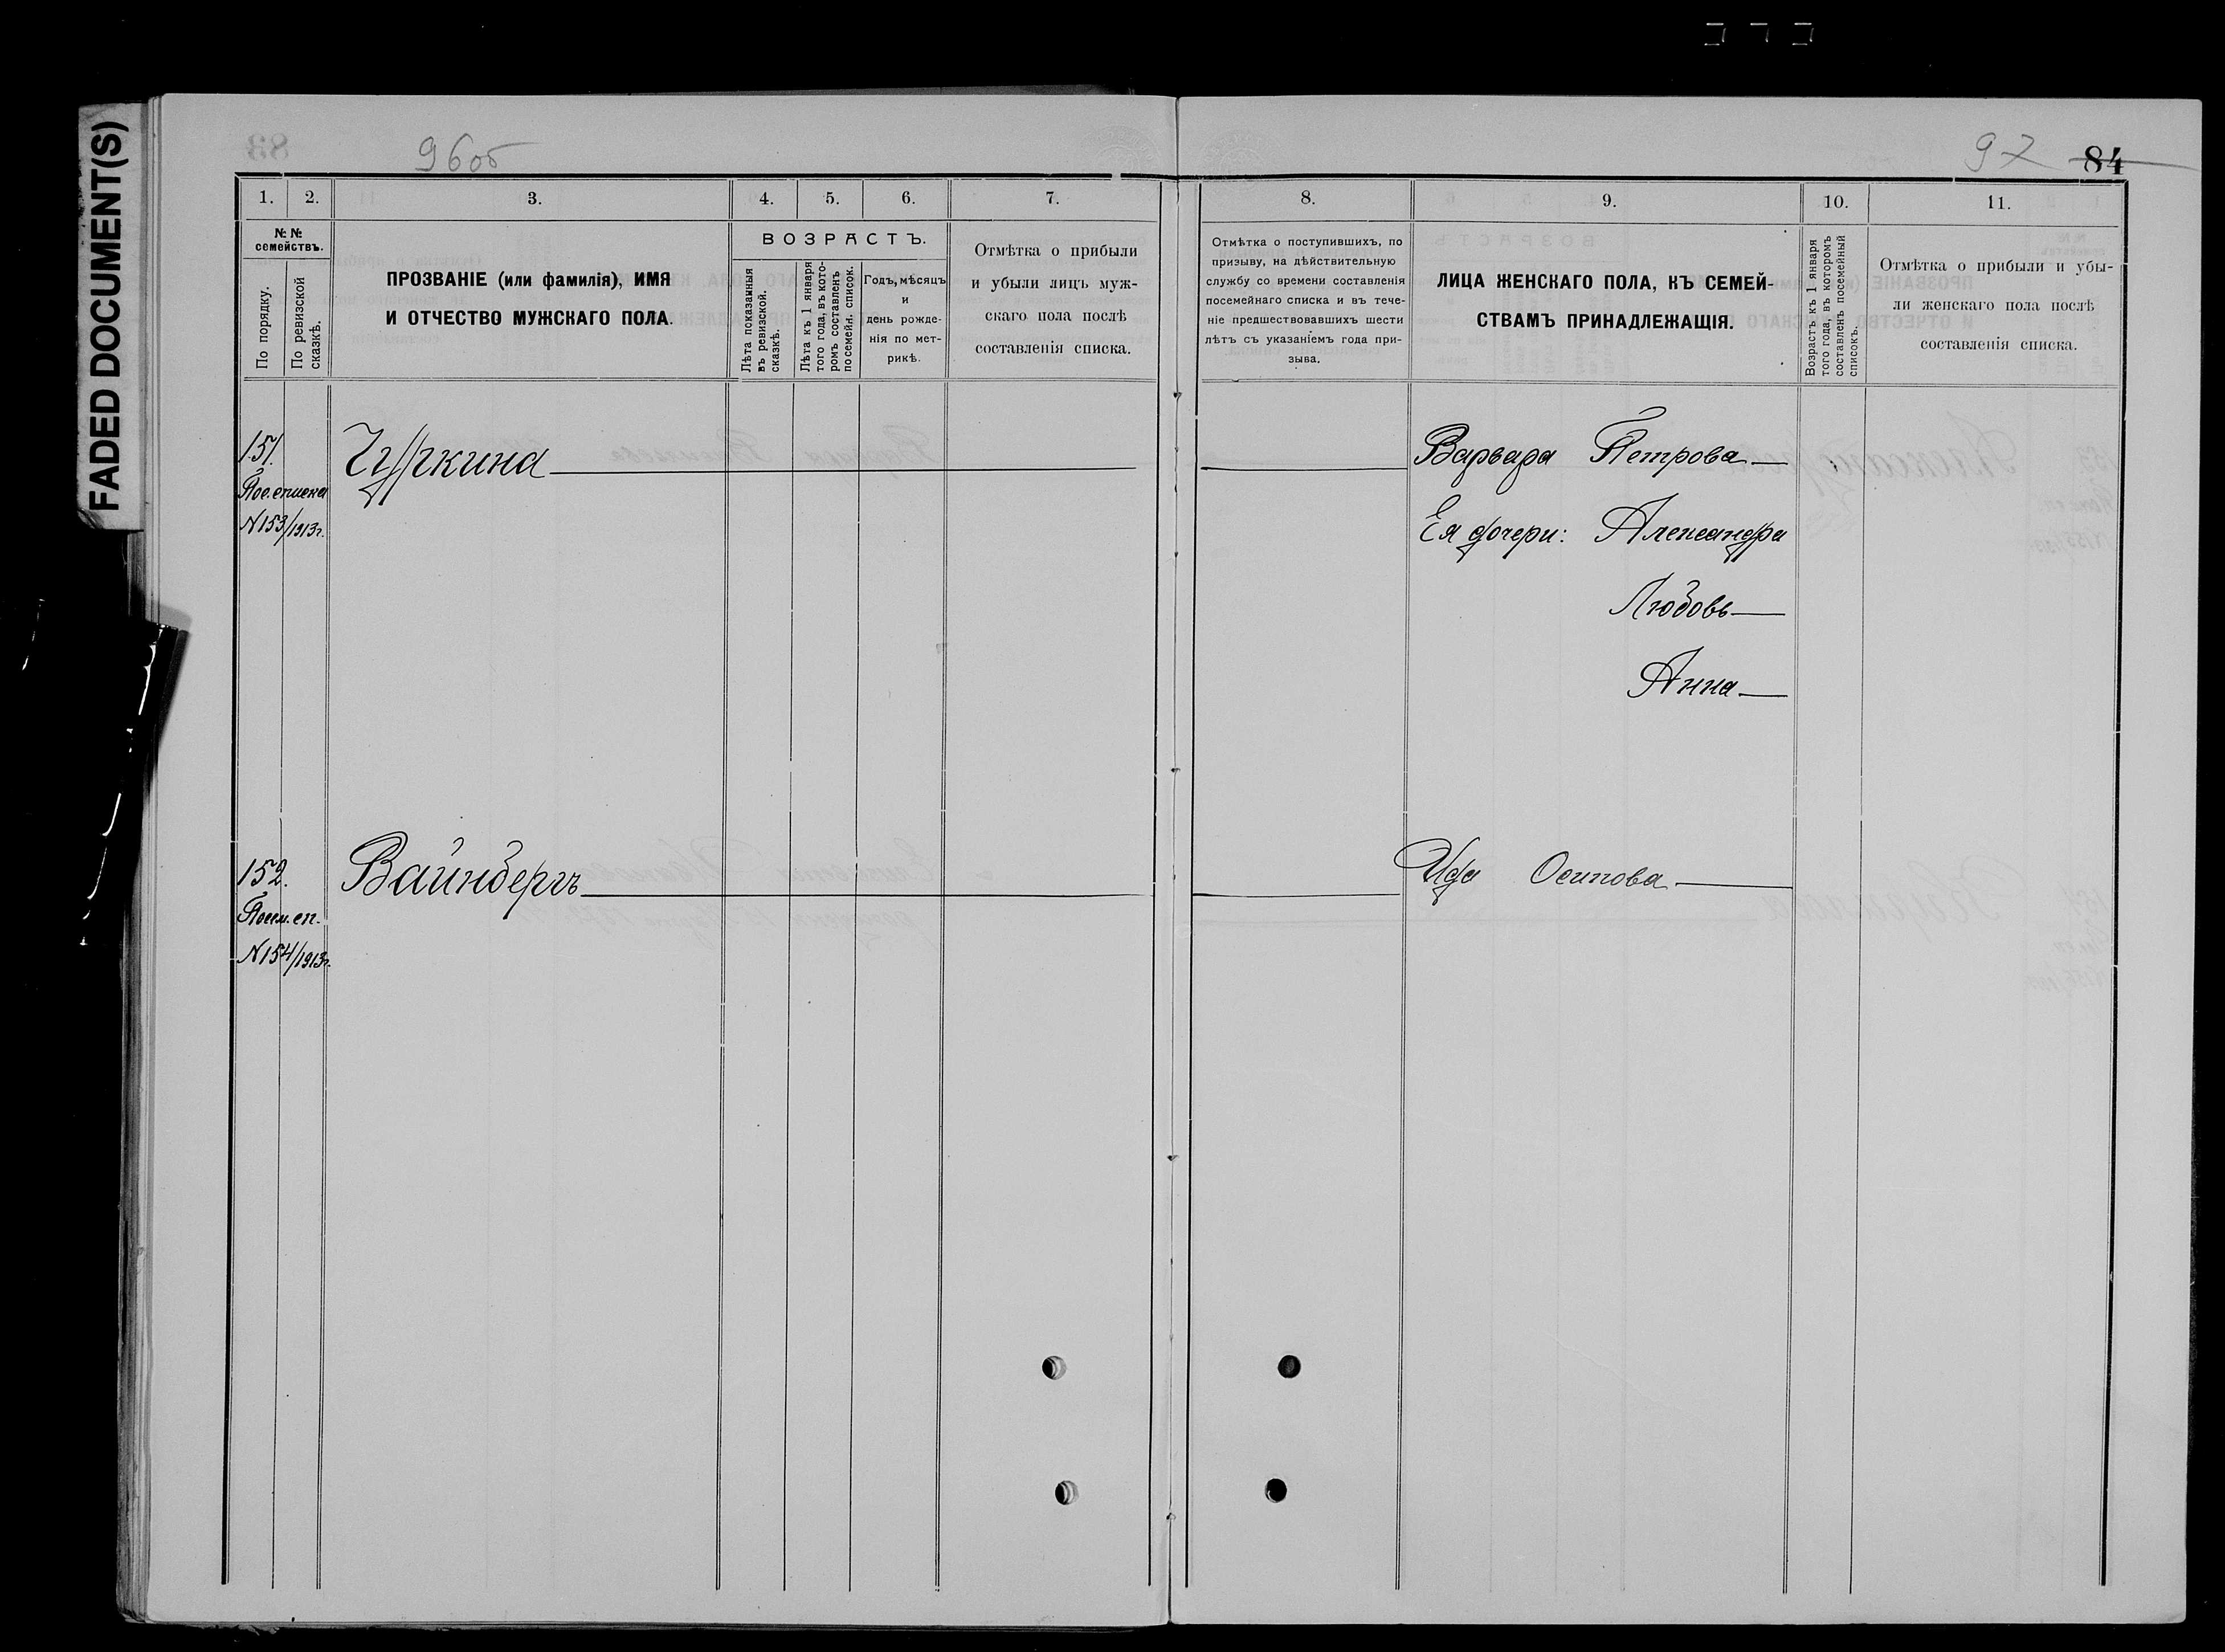 FADED DOCUMENT(S)
96об
97 84
1. 2. 3. 4. 5. 6. 7.
№ №
семействъ.
По порядку.
По ревизской
сказкѣ.
ПРОЗВАНІЕ (или фамилія), ИМЯ
И ОТЧЕСТВО МУЖСКАГО ПОЛА.
ВОЗРАСТЪ.
Лѣта показанныя
въ ревизской.
сказкѣ.
Лѣта къ 1 января
того года, въ кото-
ромъ составленъ
посемейн. список.
Годъ, мѣсяцъ
и
день рожде-
нія по мет-
рикѣ.
Отмѣтка о прибыли
и убыли лицъ муж-
скаго пола послѣ
составленія списка.
8. 9. 10. 11.
Отмѣтка о поступившихъ, по
призыву, на дѣйствительную
службу со времени составленія
посемейнаго списка и въ тече-
ніе предшествовавшихъ шести
лѣтъ съ указаніемъ года при-
зыва.
ЛИЦА ЖЕНСКАГО ПОЛА, КЪ СЕМЕЙ-
СТВАМЪ ПРИНАДЛЕЖАЩІЯ.
Возрастъ къ 1 января
того года, въ которомъ
составленъ посемейный
списокъ.
Отмѣтка о прибыли и убы-
ли женскаго пола послѣ
составленія списка.
151. Чуркина Варвара Петрова
Пос. списка
N153/1913г. Ея дочери: Александра
Любовь
Анна
152. Вайнбергъ Ида Осипова
Посем. сп.
N154/1913г.